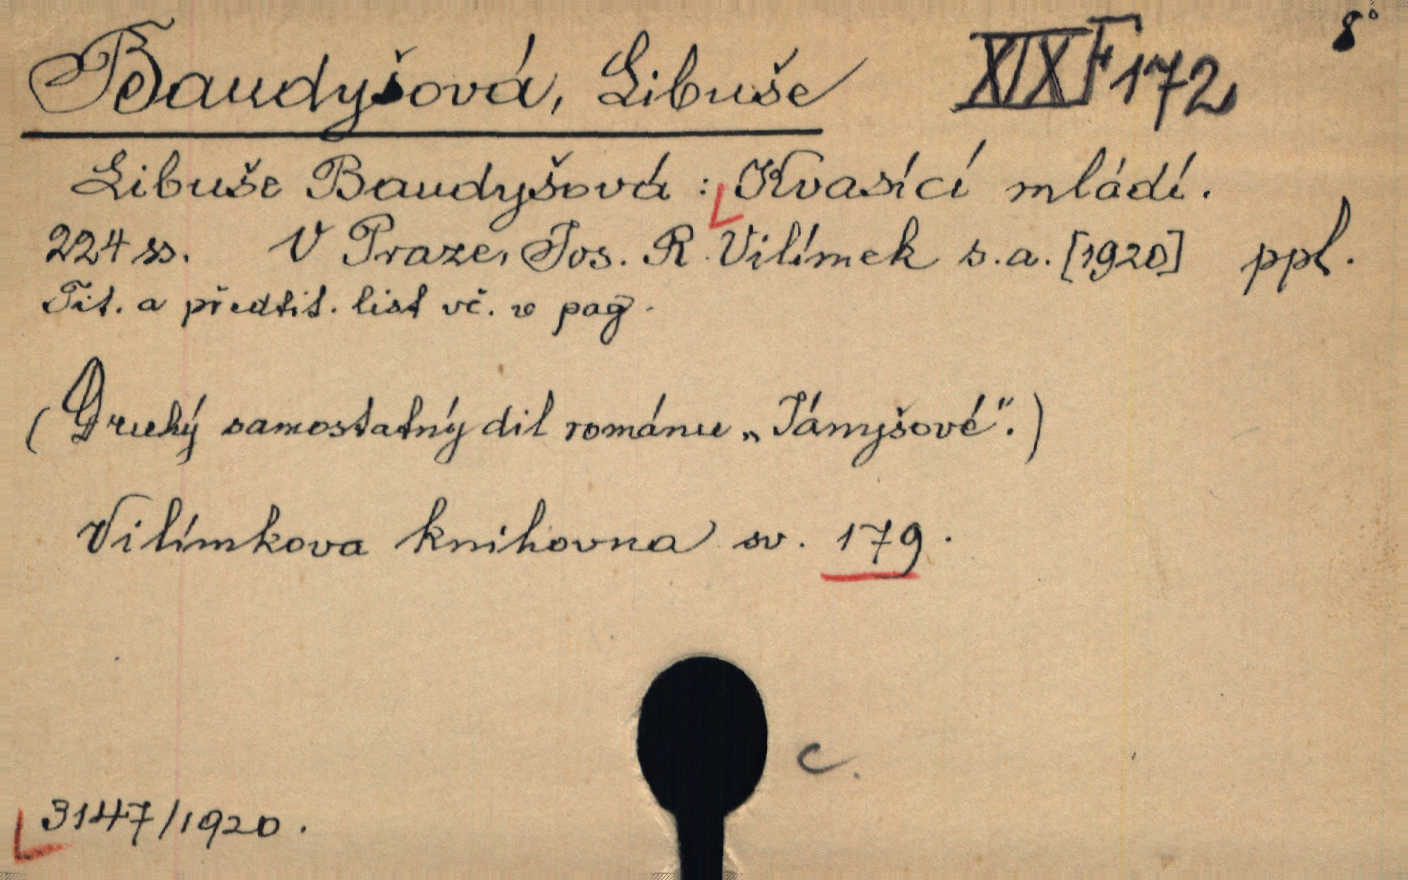 Baudyšová, Libuše XIX F 172 8°
Libuše Baudyšová : Kvasící mládí.
224 ss. V Praze, Jos. R. Vilímek s.a. [1920] ppl.
Tit. a předtit. list vč. v pag.
(Druhý samostatný díl románu „Jámyšové".)
Vilímkova knihovna sv. 179.
c.
3147/1920.